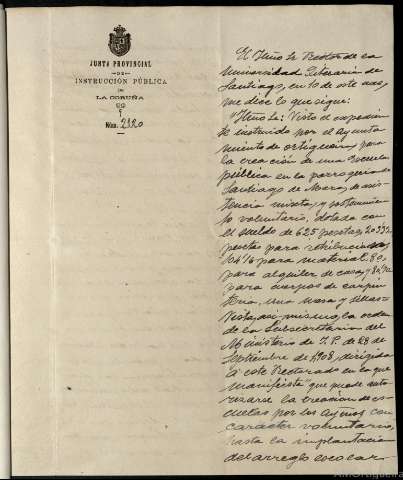 JUNTA PROVINCIAL
DE
INSTRUCCIÓN PÚBLICA
DE
LA CORUÑA
Núm. 2120
El Iltmo Sr Rector de la
Universidad Literaria de
Santiago, en 10 de este mes,
me dice lo que sigue:
"Iltmo Sr: Visto el expedien
te instruido por el Ayunta
miento de Ortigueira, para
la creación de una Escuela
pública en la parroquia de
Santiago de Mera, de asis
tencia mixta, y sostenimien
to voluntario, dotada con
el sueldo de 625 pesetas,
pesetas para retribuciones,
104'16 para material, 80,
para alquiler de casa, y
para cuerpos de carpin
tería, una mesa y sillas=
Vista, asi mismo, la orden
de la Subsecretaria del
Ministerio de I.P. de 28 de
Septiembre de 1908, dirigida
á este Rectorado en la que
manifiesta "que puede auto
rizarse la creación de es-
cuelas por los Aytos con
caracter voluntario,
hasta la implantación
del arreglo escolar-